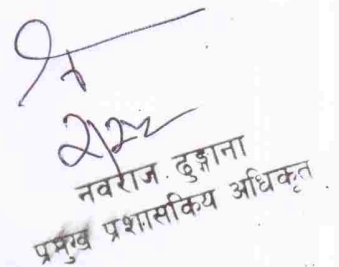 नवराज ढुङ्गाना
प्रमुख प्रशासकिय अधिकृत